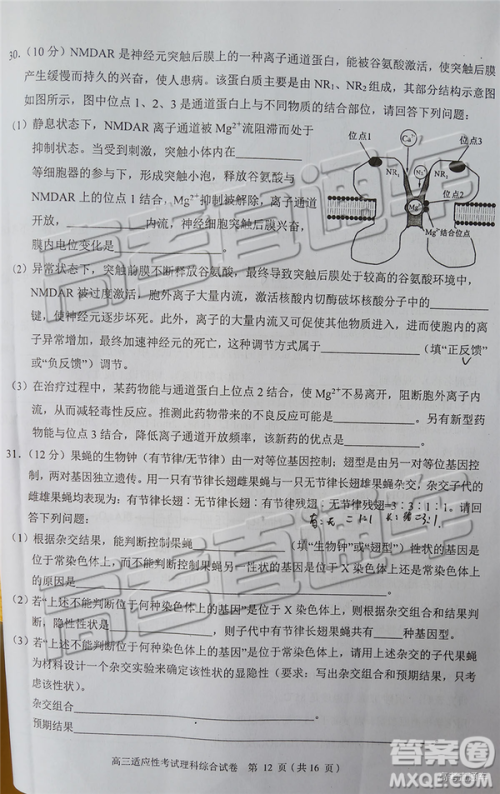 30.(10 分) NMDAR 是神经元突触后膜上的一种离子通道蛋白,能被谷氨酸激活,使突触后膜
产生缓慢而持久的兴奋,使人患病。该蛋白质主要是由 NR₁、NR₂ 组成,其部分结构示意图
如图所示,图中位点 1、2、3 是通道蛋白上与不同物质的结合部位,请回答下列问题:
(1) 静息状态下,NMDAR 离子通道被 Mg²⁺流阻滞而处于
抑制状态。当受到刺激,突触小体内在____________
等细胞器的参与下,形成突触小泡,释放谷氨酸与
NMDAR 上的位点 1 结合,Mg²⁺抑制被解除,离子通道
开放,____________内流,神经细胞突触后膜兴奋,
膜内电位变化是____________。
位点1
Ca²⁺
位点3
NR₁
NR₂
位点2
Mg²⁺
Mg²⁺结合位点
(2) 异常状态下,突触前膜不断释放谷氨酸,最终导致突触后膜处于较高的谷氨酸环境中,
NMDAR 被过度激活,胞外离子大量内流,激活核酸内切酶破坏核酸分子中的____________
键,使神经元逐步坏死。此外,离子的大量内流又可促使胞内谷氨酸的大量释放,使内流的离
子异常增加,最终加速神经元的死亡,这种调节方式属于____________(填“正反馈”
或“负反馈”)调节。
(3) 在治疗过程中,某药物能与通道蛋白上位点 2 结合,使 Mg²⁺不易移开,阻断胞外离子内
流,从而减轻毒性反应。推测此药物带来的不良反应可能是____________。另有新型药
物能与位点 3 结合,降低离子通道开放频率,该新药的优点是____________。
31.(12 分) 果蝇的生物钟(有节律/无节律)由一对等位基因控制;翅型是由另一对等位基因
控制,两对基因独立遗传。用一只有节律长翅雌果蝇与一只无节律长翅雄果蝇杂交,杂交子代的
雌雄果蝇均表现为:有节律长翅∶无节律长翅∶有节律残翅∶无节律残翅=3∶3∶1∶1。请回
答下列问题:
有:无=1:1 长:残=3:1
(1) 根据杂交结果,能判断控制果蝇____________(填“生物钟”或“翅型”)性状的基因
是位于常染色体上的,而不能判断控制果蝇另一性状的基因是位于常染色体上还是位于 X 染
色体上的原因是____________
(2) 若“上述不能判断位于何种染色体上的基因”是位于 X 染色体上,则根据杂交组合和结果判
断,隐性性状是____________,则子代中有节律长翅果蝇共有____种基因型。
(3) 若“上述不能判断位于何种染色体上的基因”是位于常染色体上,请用上述杂交的子代果蝇
为材料设计一个杂交实验来确定该性状的显隐性(要求:写出杂交组合和预期结果,只考
虑该性状)。
杂交组合____________
预期结果____________
高三适应性考试理科综合试卷 第 12 页(共 16 页)
高考直通车
高考直通车
高考直通车
答案圈